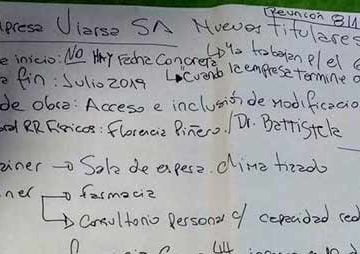 Reunión 8/1
presa Viarsa SA Nuevos Titulares
e inicio: NO Hay Fecha Concreta ↳ Ya trabajan p/el
fin: Julio 2019 ↳ Cuando la empresa termine
de obra: Acceso e inclusión de modificacio
RR Físicos: Florencia Piñero / Dr. Battistela
ainer → Sala de espera climatizada
ner → farmacia
↳ Consultorio personal c/ capacidad red